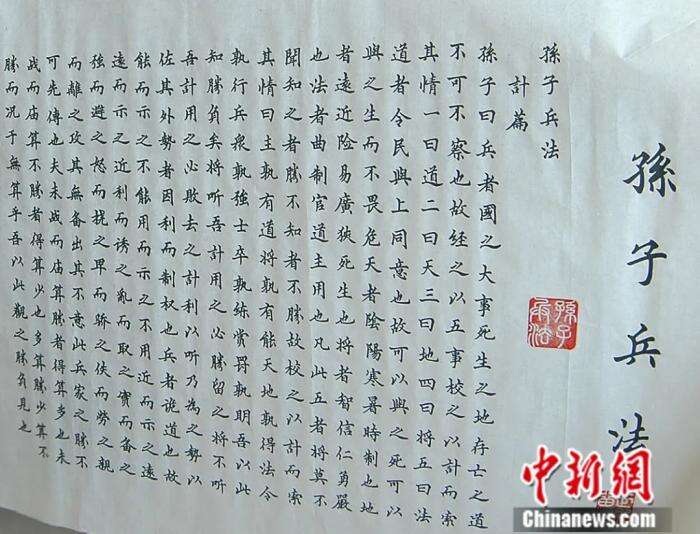 孫子兵法
孫子兵法
孫子兵法
計篇
孫子曰兵者國之大事死生之地存亡之道
不可不察也故经之以五事校之以計而索
其情一曰道二曰天三曰地四曰将五曰法
道者令民與上同意也故可以與之死可以
與之生而不畏危天者陰陽寒暑時制也地
者遠近险易廣狹死生也将者智信仁勇嚴
也法者曲制官道主用也凡此五者将莫不
聞知之者勝不知者不勝故校之以計而索
其情曰主孰有道将孰有能天地孰得法令
孰行兵衆孰強士卒孰练赏罸孰明吾以此
知勝負矣将听吾計用之必勝留之将不听
吾計用之必敗去之計利以听乃為之勢以
佐其外勢者因利而制权也兵者诡道也故
能而示之不能用而示之不用近而示之遠
遠而示之近利而诱之亂而取之實而备之
強而避之怒而挠之卑而骄之佚而劳之親
而離之攻其無备出其不意此兵家之勝不
可先傳也夫未战而庙算勝者得算多也未
战而庙算不勝者得算少也多算勝少算不
勝而况于無算乎吾以此觀之勝負見也
中新网
Chinanews.com